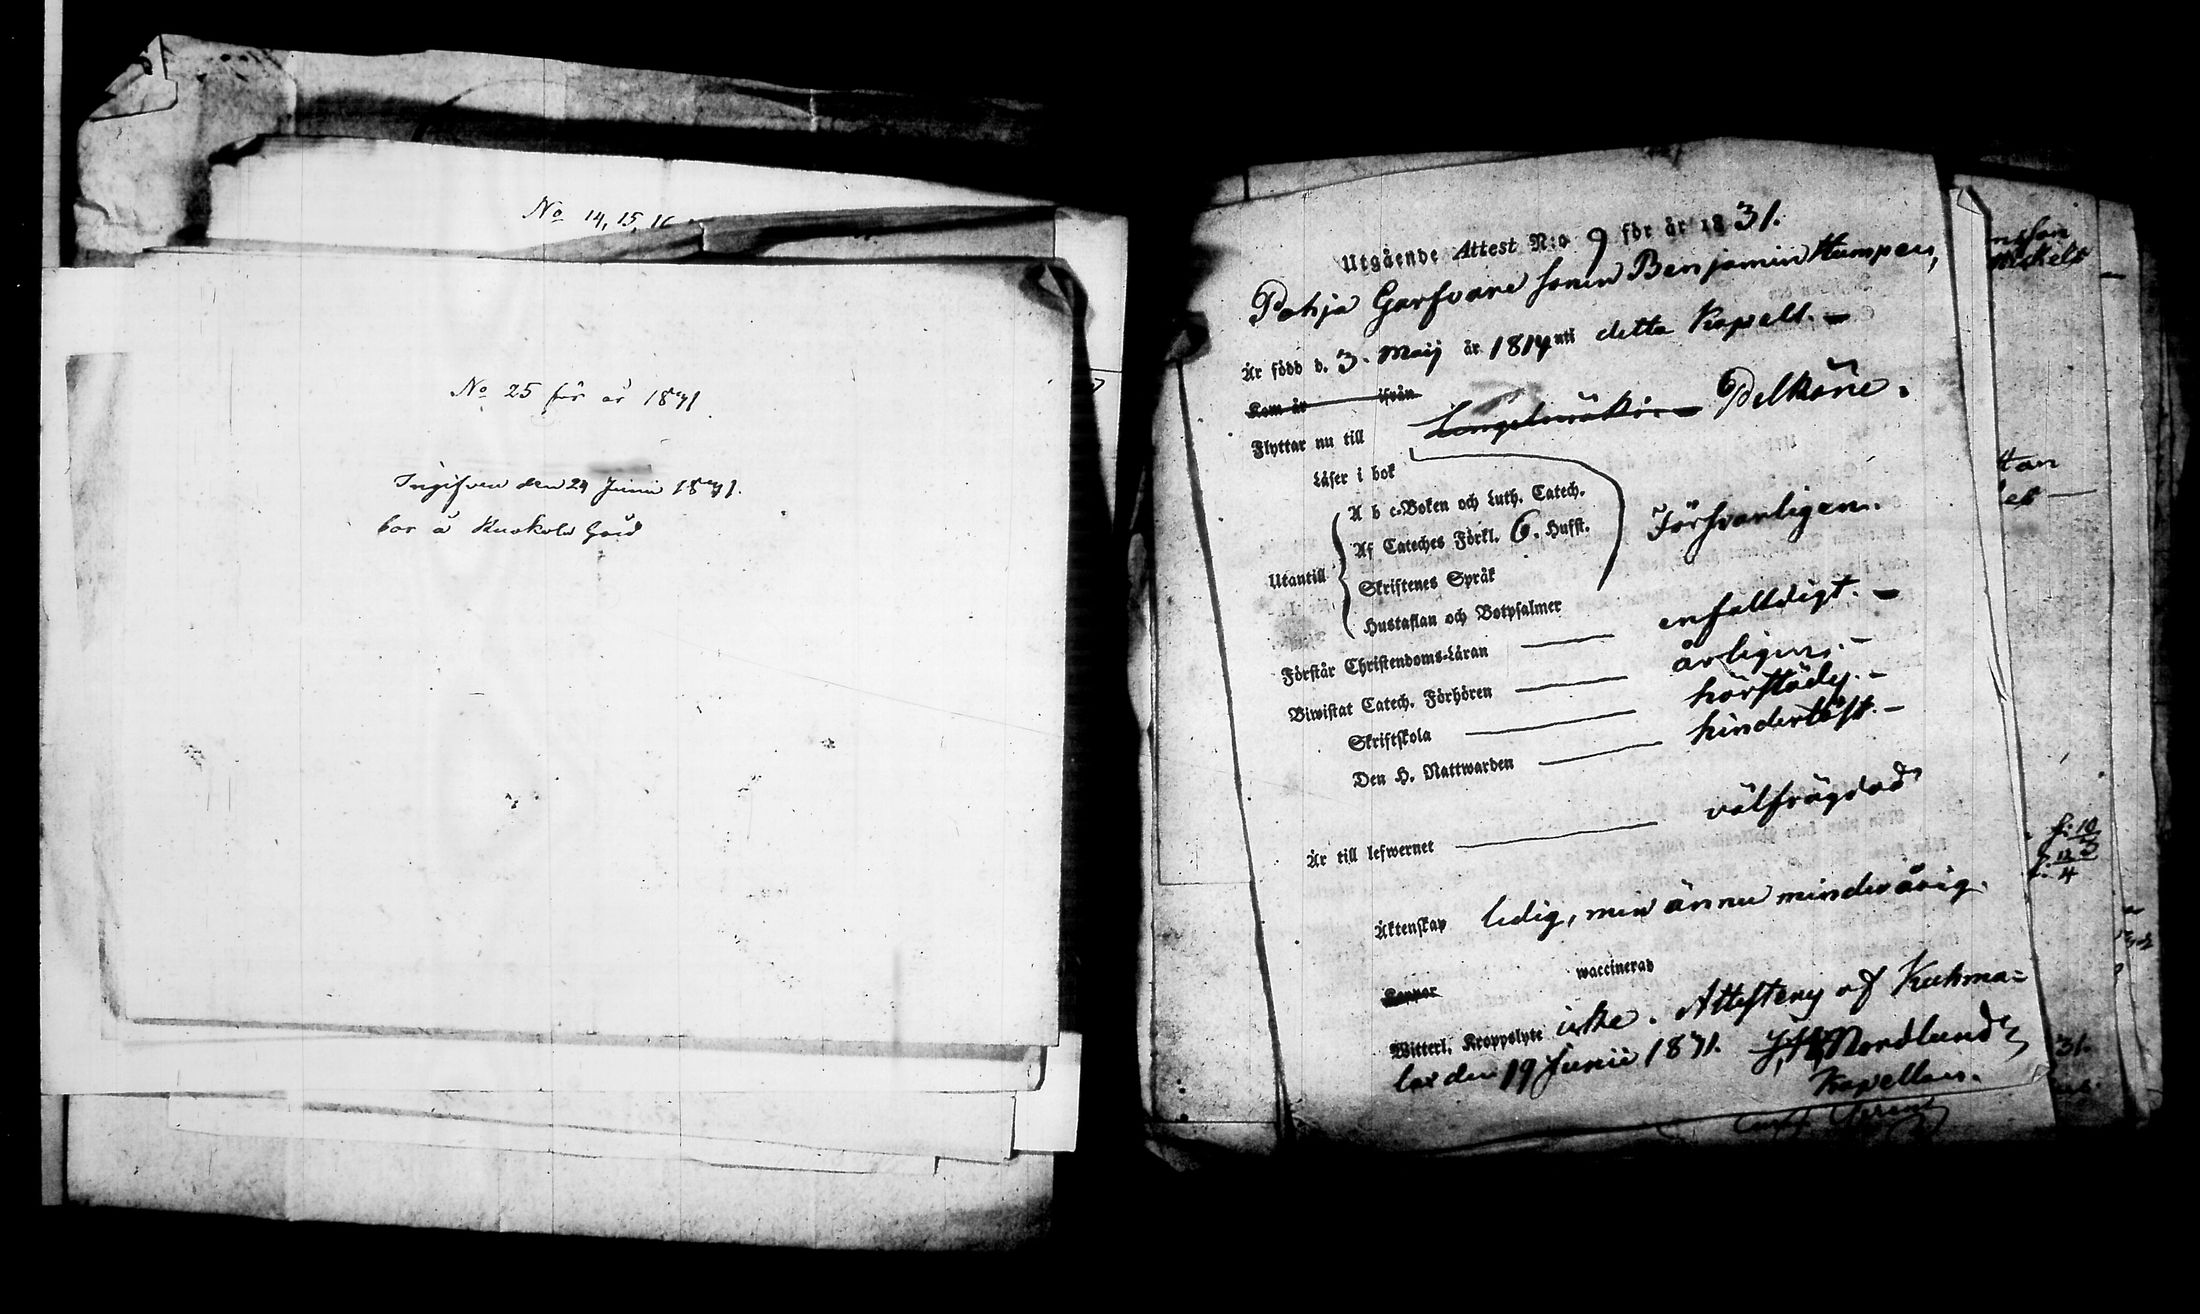 No 14, 15, 16
No 25 för år 1831
Ingifven den 24 Junii 1831.
bor å Kuokola Gård
Utgående Attest N:o 9 för år 1831.
Pohja Garfvare sonen Benjamin Humpen,
Är född d. 3. Maij år 1814 uti detta Kapell. –
Kom år ifrån
Flyttar nu till Lengelmäki – Pelkäne.
Läser i bok
A b c-Boken och Luth. Catech.
Af Cateches Förkl. 6. Hufst.
Försvarligen.
Utantill
Skriftenes Språk
Hustaflan och Botpsalmer
Förstår Christendoms-Läran enfalldigt. –
Biwistat Catech. Förhören årligen. –
Skriftskola
Den H. Nattwarden
Är till lefwernet välfrägdad
Äktenskap ledig, men ännu minderårig.
Koppor waccinerad
Witterl. Kroppslyte icke. Attesteras af Kuhma=
lax den 19 Junii 1831. Nordlund
Kapellan.
31.